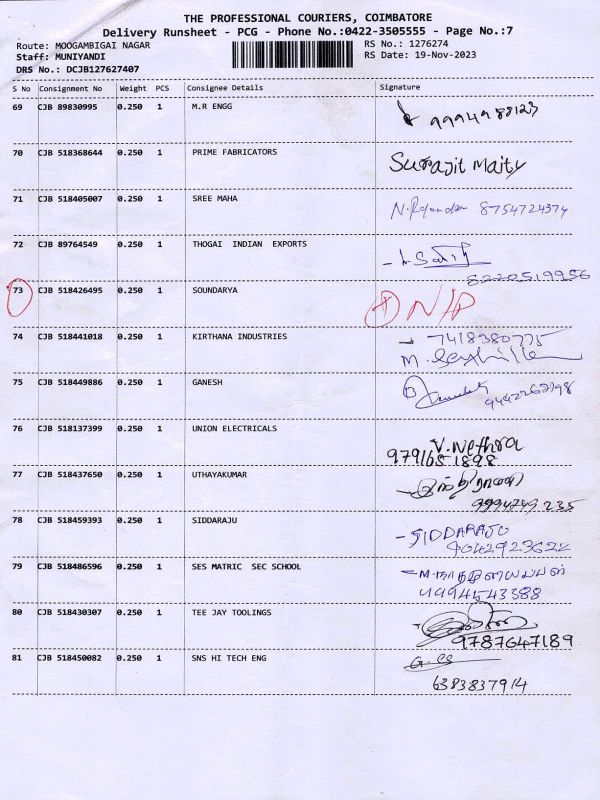 THE PROFESSIONAL COURIERS, COIMBATORE
Delivery Runsheet - PCG - Phone No.:0422-3505555 - Page No.:7
Route: MOOGAMBIGAI NAGAR RS No.: 1276274
Staff: MUNIYANDI RS Date: 19-Nov-2023
DRS No.: DCJB127627407
S No Consignment No Weight PCS Consignee Details Signature
69 CJB 89830995 0.250 1 M.R ENGG
70 CJB 518368644 0.250 1 PRIME FABRICATORS Surajit Maity
71 CJB 518405007 0.250 1 SREE MAHA 8754724374
72 CJB 89764549 0.250 1 THOGAI INDIAN EXPORTS
8220519956
73 CJB 518426495 0.250 1 SOUNDARYA
74 CJB 518441018 0.250 1 KIRTHANA INDUSTRIES 7418380775
75 CJB 518449886 0.250 1 GANESH
76 CJB 518137399 0.250 1 UNION ELECTRICALS
V.Nethra
9791651898
77 CJB 518437650 0.250 1 UTHAYAKUMAR
9994749235
78 CJB 518459393 0.250 1 SIDDARAJU
SIDDARAJU
79 CJB 518486596 0.250 1 SES MATRIC SEC SCHOOL
80 CJB 518430307 0.250 1 TEE JAY TOOLINGS
9787647189
81 CJB 518450082 0.250 1 SNS HI TECH ENG
6383837914